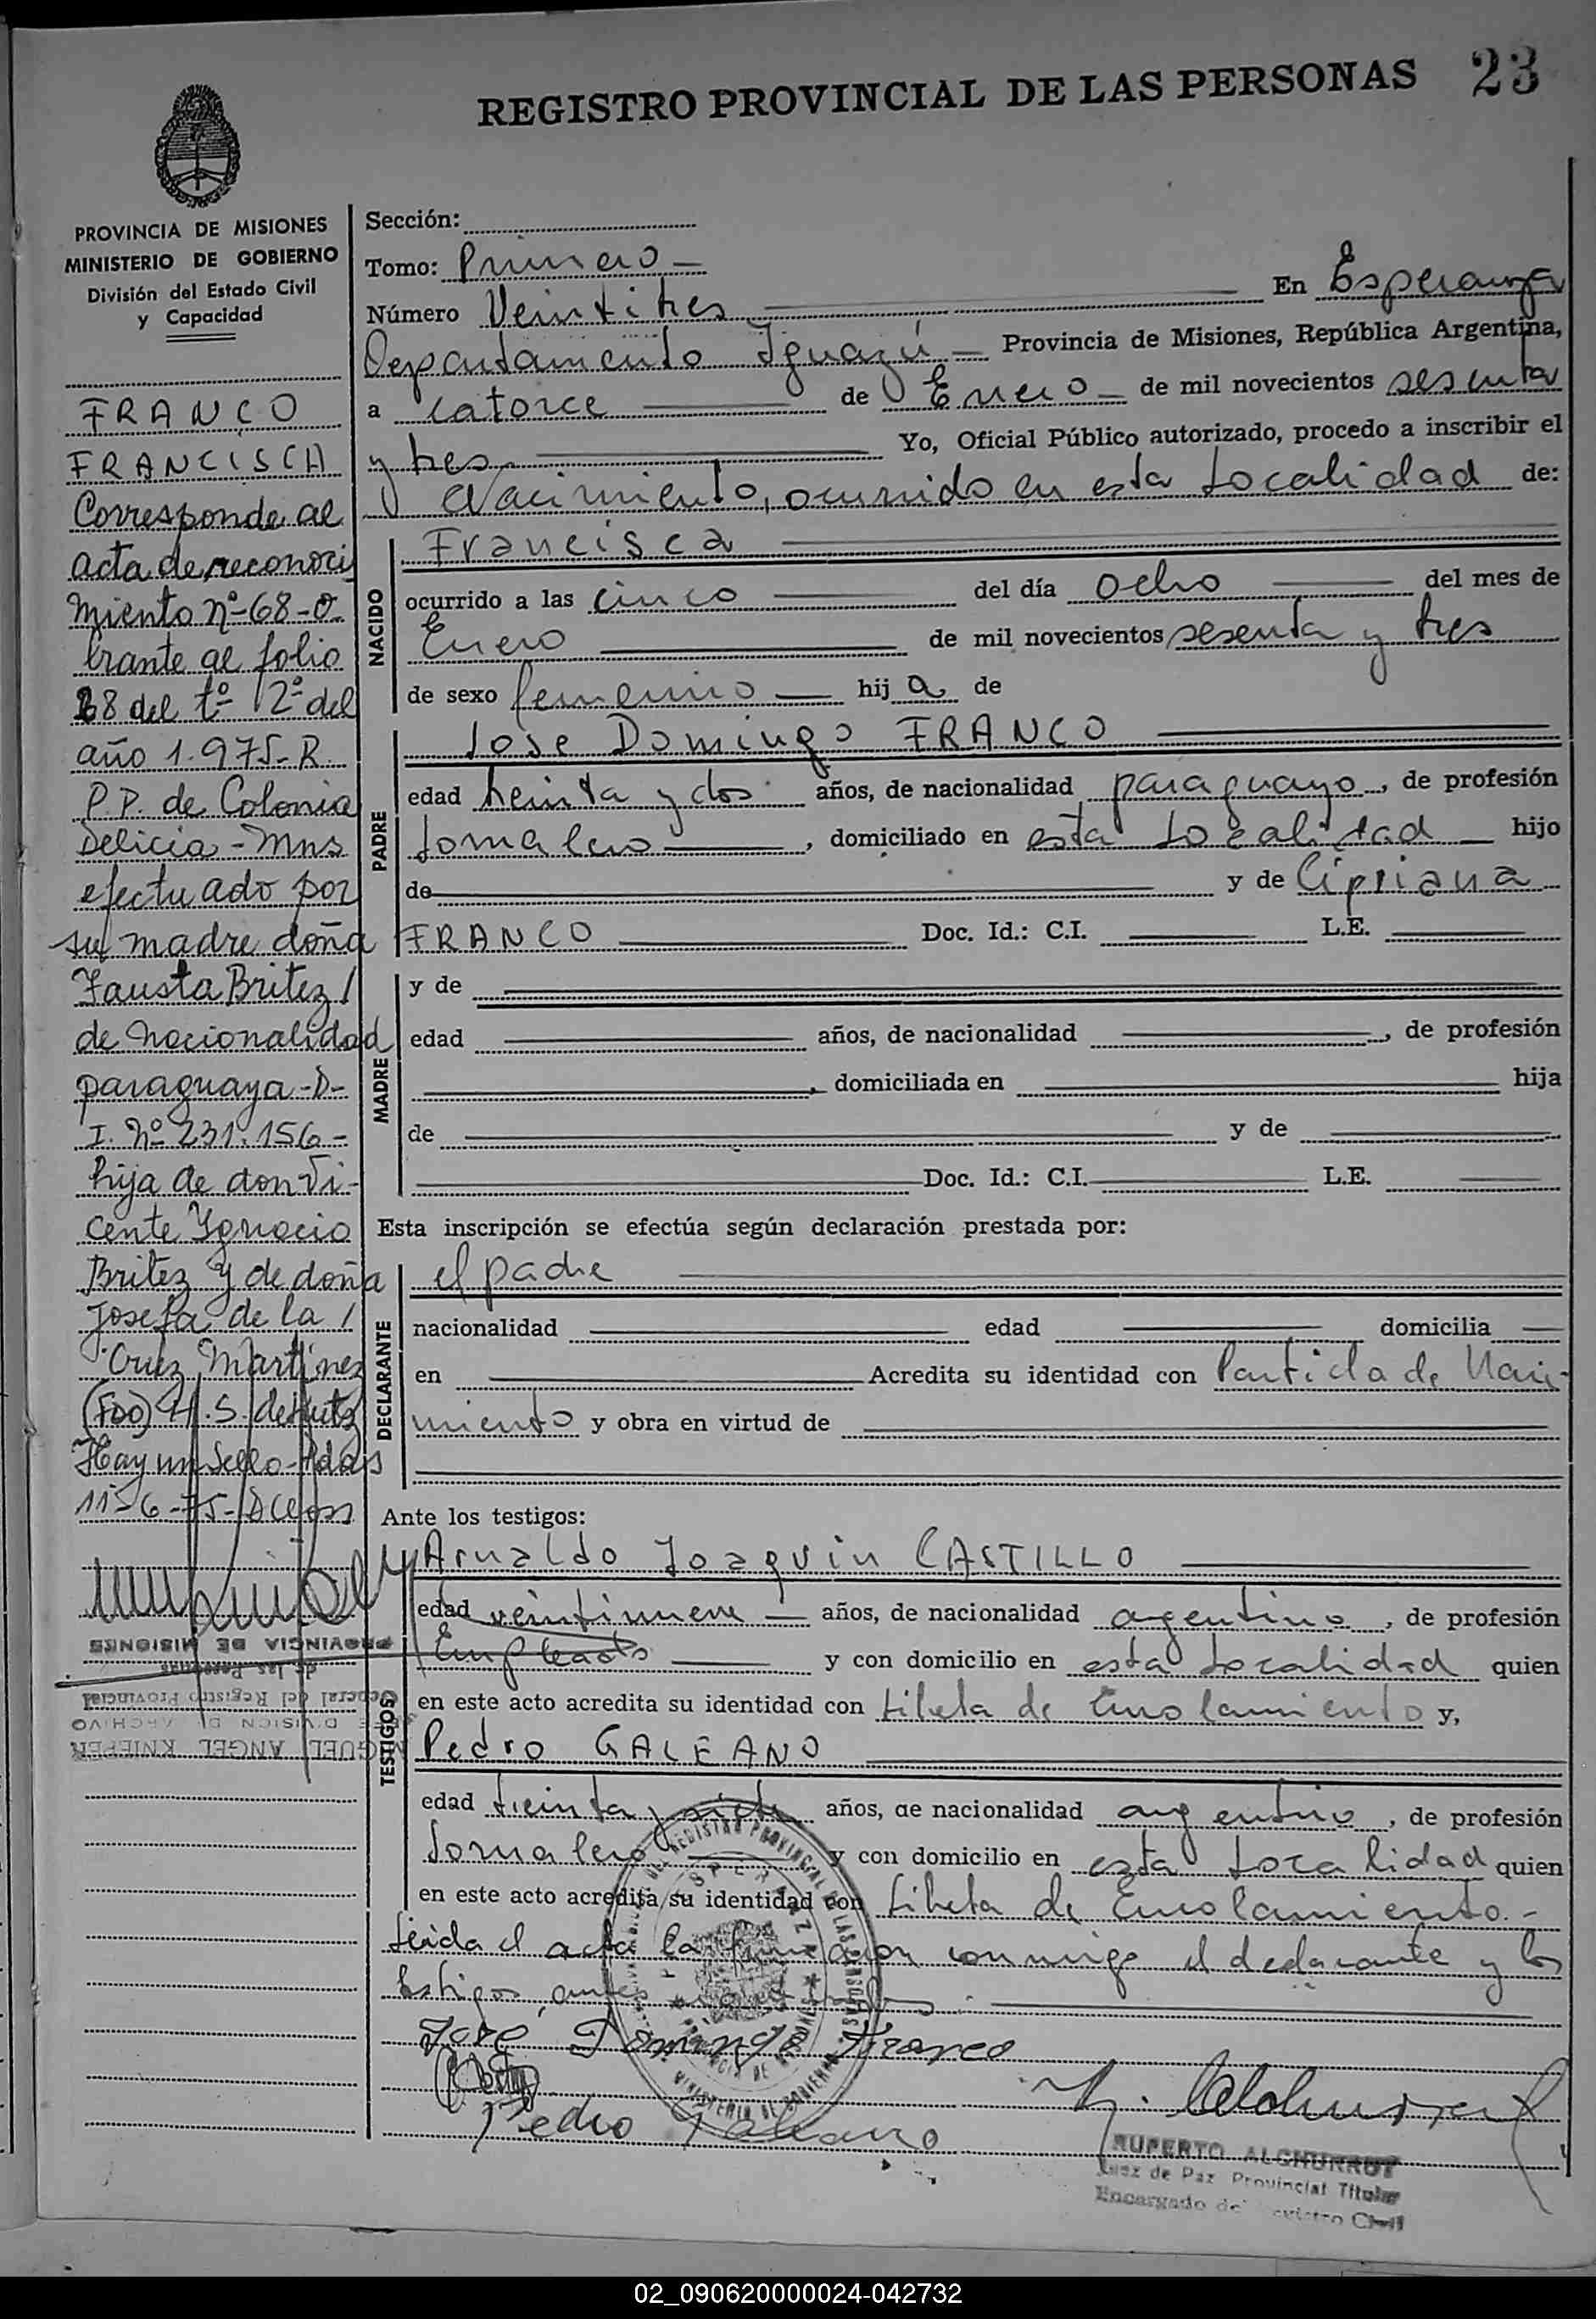 REGISTRO PROVINCIAL DE LAS PERSONAS 23
PROVINCIA DE MISIONES
MINISTERIO DE GOBIERNO
División del Estado Civil
y Capacidad
FRANCO
FRANCISCA
Corresponde al
acta de reconoci
miento nº 68-o
brante al folio
68 del tº 2º del
año 1.975-R.
P.P. de Colonia
Delicia - Mns
efectuado por
su madre doña
Fausta Britez /
de nacionalidad
paraguaya - D-
I. Nº 231.156-
hija de don Vi-
cente Ignacio
Britez y de doña
Josefa de la /
Cruz Martinez
(Fdo) H.S. de
Hay un sello - Pdas
11-6-75-
PROVINCIA DE MISIONES
de las Personas
General del Registro Provincial
JEFE DIVISION DE ARCHIVO
MIGUEL ANGEL KNIEPER
Sección:
Tomo: Primero -
Número Veintitres En Esperanza
Departamento Iguazú - Provincia de Misiones, República Argentina,
a catorce de Enero - de mil novecientos sesenta
y tres Yo, Oficial Público autorizado, procedo a inscribir el
Nacimiento, ocurrido en esta Localidad de:
NACIDO
Francisca
ocurrido a las cinco del día ocho del mes de
Enero de mil novecientos sesenta y tres
de sexo femenino - hija de
PADRE
Jose Domingo FRANCO
edad treinta y dos años, de nacionalidad paraguayo, de profesión
Jornalero, domiciliado en esta Localidad - hijo
de y de Cipriana
FRANCO Doc. Id.: C.I. L.E.
MADRE
y de
edad años, de nacionalidad , de profesión
, domiciliada en hija
de y de
Doc. Id.: C.I. L.E.
Esta inscripción se efectúa según declaración prestada por:
DECLARANTE
el padre
nacionalidad edad domicilia
en Acredita su identidad con Partida de Naci-
miento y obra en virtud de
Ante los testigos:
TESTIGOS
Arnaldo Joaquin CASTILLO
edad veintinueve - años, de nacionalidad argentino, de profesión
Empleado y con domicilio en esta Localidad quien
en este acto acredita su identidad con Libreta de Enrolamiento y,
Pedro GALEANO
edad treinta y siete años, de nacionalidad argentino, de profesión
Jornalero y con domicilio en esta Localidad quien
en este acto acredita su identidad con Libreta de Enrolamiento.-
Leida el acta la firman con migo el declarante y los
testigos, antes
José Domingo Franco
Pedro Galeano
RUPERTO ALCHURRUT
Juez de Paz Provincial Titular
Encargado del Registro Civil
02_090620000024-042732